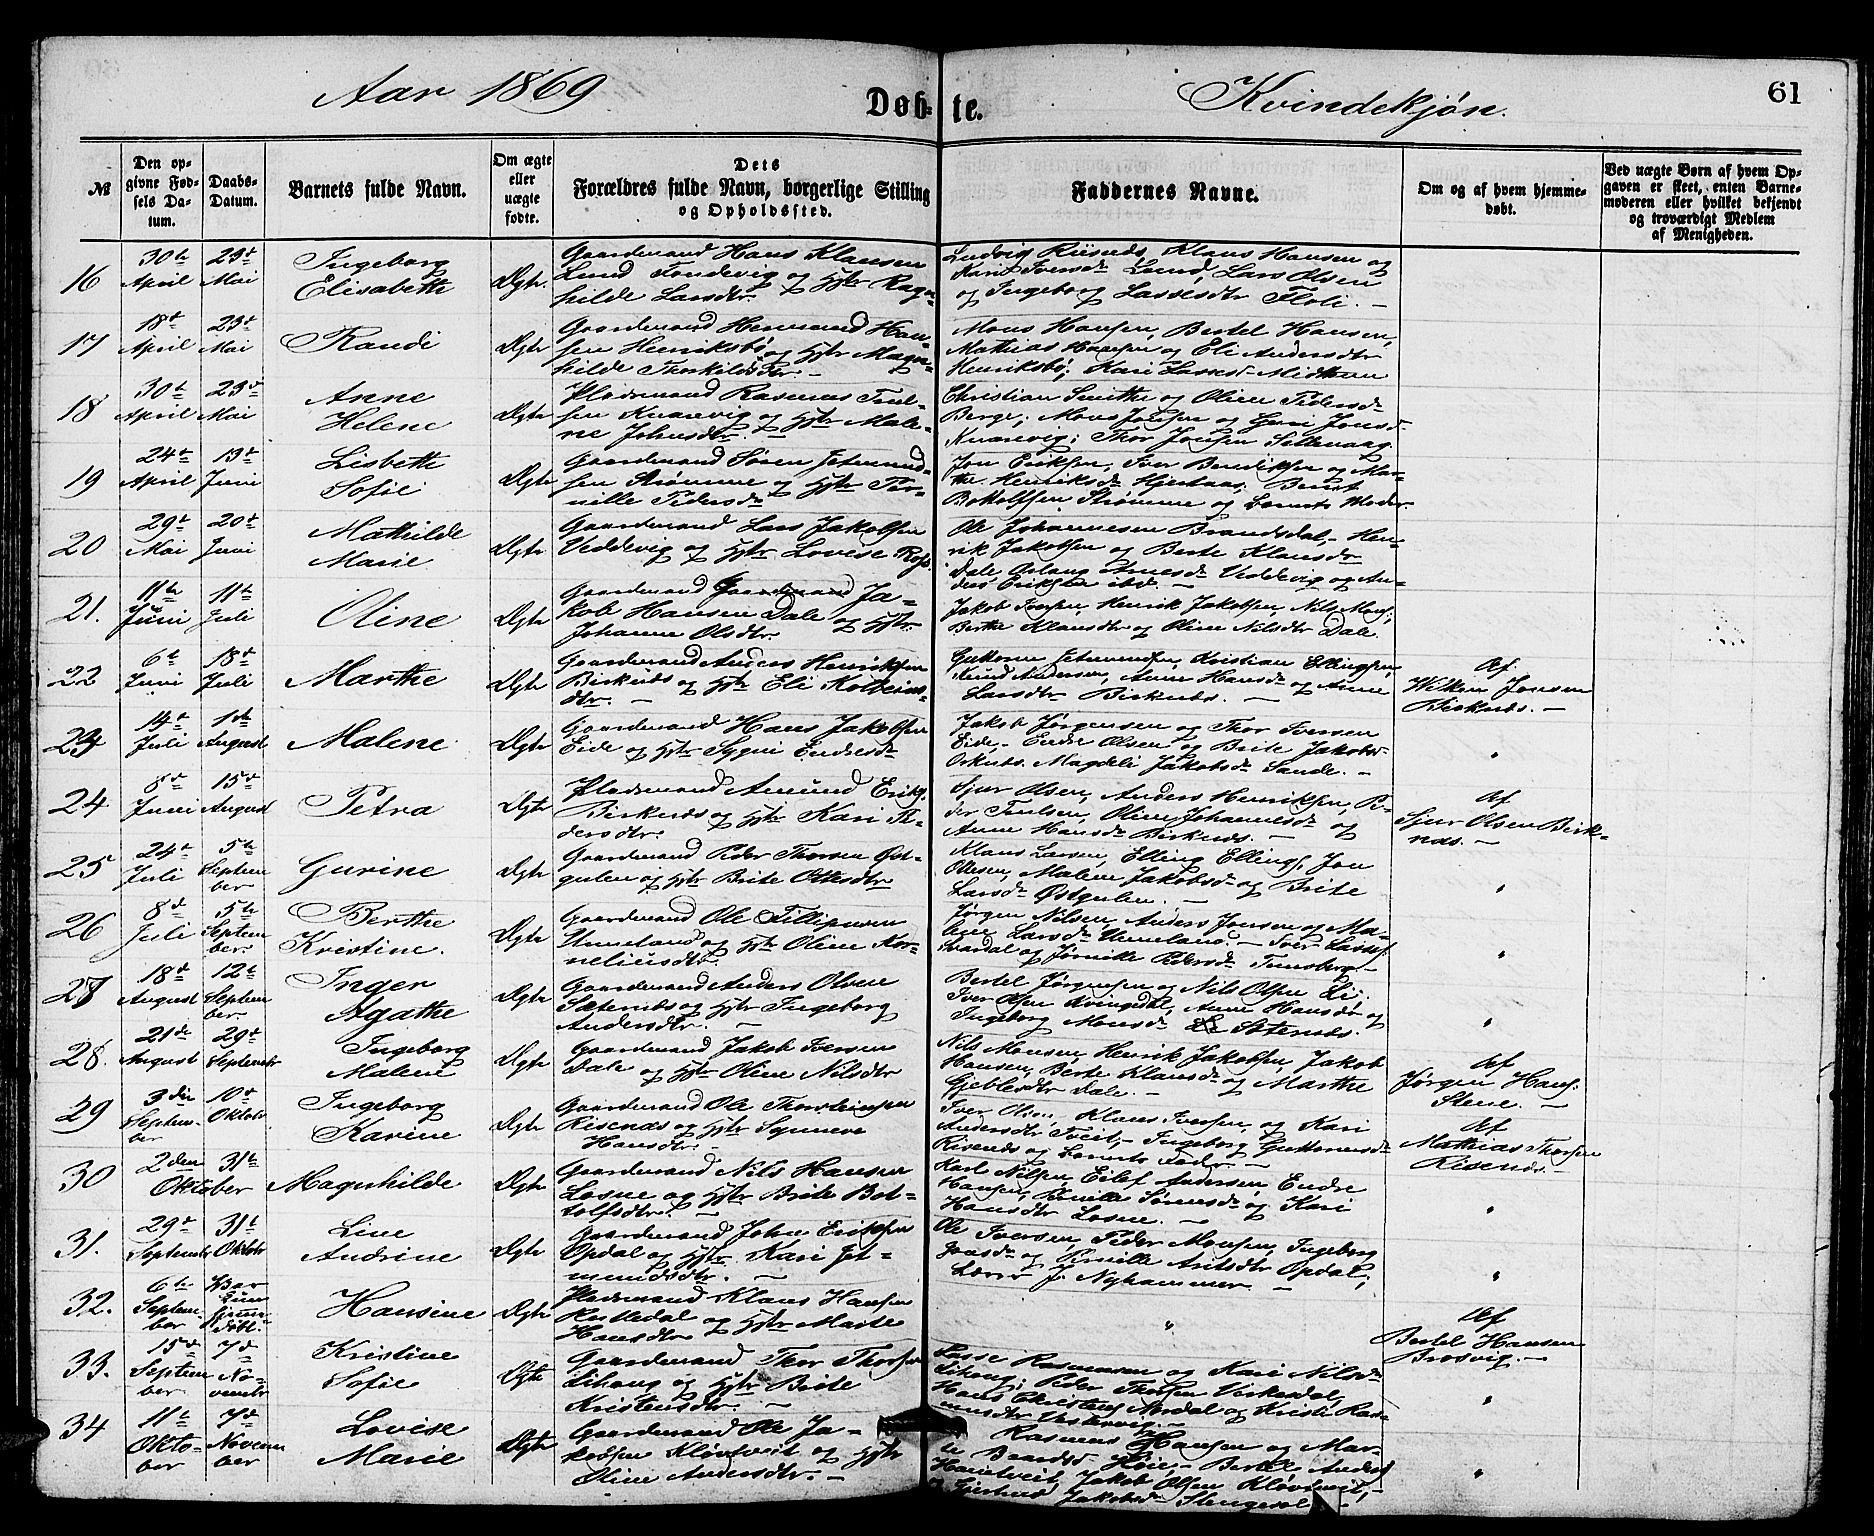 Aar 1869
Døb-
te.
Kvindekjøn.
61
№
Den op-
givne Fød-
sels Da-
tum.
Daabs-
Datum.
Barnets fulde Navn.
Om ægte
eller
uægte
fødte.
Dets
Forældres fulde Navn, borgerlige Stilling
og Opholdssted.
Faddernes Navne.
Om og af hvem hjemme-
døbt.
Ved uægte Børn af hvem Op-
gaven er skeet, enten Barne-
moderen eller hvilket bekjendt
og troværdigt Medlem
af Menigheden.
16
30te April
23de Mai
Ingeborg
Elisabeth
Ægte
Gaardmand Hans Klausen
Lund Fondevig og Hstr Ragn-
hilde Larsdtr.
Ludvig Risnes, Klaus Hansen og
Kari Iversdtr Lund, Lars Olsen
og Ingeborg Lassesdtr Floli. —
17
18de April
23de Mai
Randi
Ægte
Gaardmand Hermund Han-
sen Henriksbø og Hstr Magn-
hilde Thorkildsdtr. —
Mons Hansen, Bertel Hansen,
Mathias Hansen og Eli Andersdtr
Henriksbø, Kari Lassesdtr Midtun
18
30te April
23de Mai
Anne
Helene
Ægte
Pladsmand Rasmus Teul-
sen Kvarevig og Hstr Male-
ne Johnsdtr. —
Christian Smithe og Oline Pedersdtr
Berge; Mons Jonsen og Guri Jonsdtr
Kvarevig; Thor Jonsen Settevaag
19
24de April
13de Juni
Lisbeth
Sofie
Ægte
Gaardmand Søren Jetmund-
sen Strømme og Hstr Per-
nille Pedersdtr
Jon Eriksen, Iver Bendiksen og Mar-
the Henriksdtr Hjertaas; Bernt
Botholfsen Strømme og Barnets Moder.
20
29de Mai
20de Juni
Mathilde
Marie
Ægte
Gaardmand Lars Jakobsen
Veddevig og Hstr Lovise Rafs.
Ole Johannesen Brandsdal, Hen-
rik Jakobsen og Berte Klausdtr
Dale Aslaug Arnesdtr Veddevig og An-
ders Eriksen ibd. —
21.
11te Juni
11te Juli
Oline
Ægte
Gaardmand Gaardmand Ja-
kob Hansen Dale og Hstr
Johanne Olsdtr.
Jakob Iversen, Henrik Jakobsen, Nils Mons.
Berthe Klausdtr og Oline Nilsdtr Dale.
22
6te Juni
18de Juli
Marthe
Ægte
Gaardmand Anders Henriksen
Birknes og Hstr Eli Kolbeins-
dtr. —
Guttorm Jetmundsen, Kristian Ellingsen,
Knud Andersen, Anne Hansdtr og Anne
Larsdtr Birknes. —
Af
Wilken Jonsen
Birknes. —
23
14de Juli
1ste August
Malene
Ægte
Gaardmand Hans Jakobsen
Eide og Hstr Sygni Endresdtr
Jakob Jørgensen og Thor Iversen
Eide, Endre Olsen og Brite Jakobsdtr
Magdeli Jakobsdtr Sande. —
"
24
8de Juni
15de August
Petra
Ægte
Pladsmand Amund Eriks.
Birknes og Hstr Kari Pe-
dersdtr.
Sjur Olsen, Anders Henriksen, Pe-
der Teulsen, Oline Johannesdtr og
Anne Hansdtr Birknes. —
Af
Sjur Olsen Birk-
nes. —
25
24de Juli
5te Septem
ber
Gurine
Ægte
Gaardmand Peder Thorsen Øst-
gulen og Hstr Brite Ottesdtr
Klaus Larsen, Elling Ellings., Jon
Ottesen, Malene Jakobsdtr og Brite
Larsdtr Østgulen. —
"
26
8de Juli
5te Septem
ber.
Berthe
Kristine.
Ægte
Gaardmand Ole Fillipusen
Unneland og Hstr Oline Kor-
neliusdtr.
Jørgen Nilsen, Anders Iversen og Ma-
lene Larsdtr Unneland. — Iver Lasses.
Svardal og Jørnille Pedersdtr Tunsberg. —
"
27
18de August
12te Septem
ber.
Inger
Agathe
Ægte
Gaardmand Anders Olsen
Sæternes og Hstr Ingeborg
Andersdtr. —
Bertel Jørgensen og Nils Olsen Li;
Iver Olsen Kvingedal, Anne Hansdtr og
Ingeborg Monsdtr Sæternes.
"
28.
21de August
29de Septembr
Ingeborg
Malene
Ægte
Gaardmand Jakob Iversen
Dale og Hstr Oline Nilsdtr
Nils Monsen, Henrik Jakobsen, Jakob
Hansen, Berte Klausdtr og Marthe
Gjeblesdtr Dale. —
Af
Jørgen Hans.
Stene. —
29
3die Septem-
ber
10de Oktobr
Ingeborg
Karine
Ægte
Gaardmand Ole Thorsteinsen
Risenæs og Hstr Synneve
Hansdtr.
Iver Olsen, Klaus Iversen, og Kari
Andersdtr Tveit, Ingeborg Guttormsdtr
Risenes og Barnets Fader. —
Af
Mathias Thorsen
Risenes. —
30
2den 31te
Oktober
Magnhilde
Ægte
Gaardmand Nils Hansen
Losne og Hstr Brite Bot-
tolfsdtr. —
Karl Nilsen, Eilef Andersen, Endre
Hansen, Pernille Sørensdtr og Kari
Hansdtr Losne. —
"
31.
29de Septembr
31te Oktobr
Line
Andrine
Ægte
Gaardmand John Eriksen
Opdal og Hstr Kari Jet-
mundsdtr. —
Ole Iversen, Peder Monsen, Ingeborg
Jonsdtr og Pernille Antsdtr Opdal;
Lærer J. Nyhammer —
"
32.
6te Septem-
ber
Bar
kun
hjemme
døbt.
Hansine
Ægte
Pladsmand Klaus Hansen
Rutledal og Hstr Marte
Hansdtr
"
Af
Bertel Hansen
Brosvig. —
33.
15de Septem
ber
7de No-
vembr
Kristine
Sofie
Ægte
Gaardmand Thor Thorsen
Lihaug og Hstr Brite
Kristensdtr.
Lasse Rasmussen og Kari Nilsdtr
Lihaug; Peder Thorsen Virkesdal,
Hans Christens. Nordal og Kristi Ras-
musdtr Vestrevig. —
"
34
11te Okto-
ber
7de Novem
ber
Lovise
Marie
Ægte
Gaardmand Ole Ja-
kobsen Kløvtveit og Hstr
Oline Andersdtr. —
Rasmus Hansen og Mar-
te Baardsdtr Høie, Bertel Anders.
Haveltveit, Jakob Olsen Kløvtveit,
og Gjertrud Jakobsdtr Stengesøl —
"